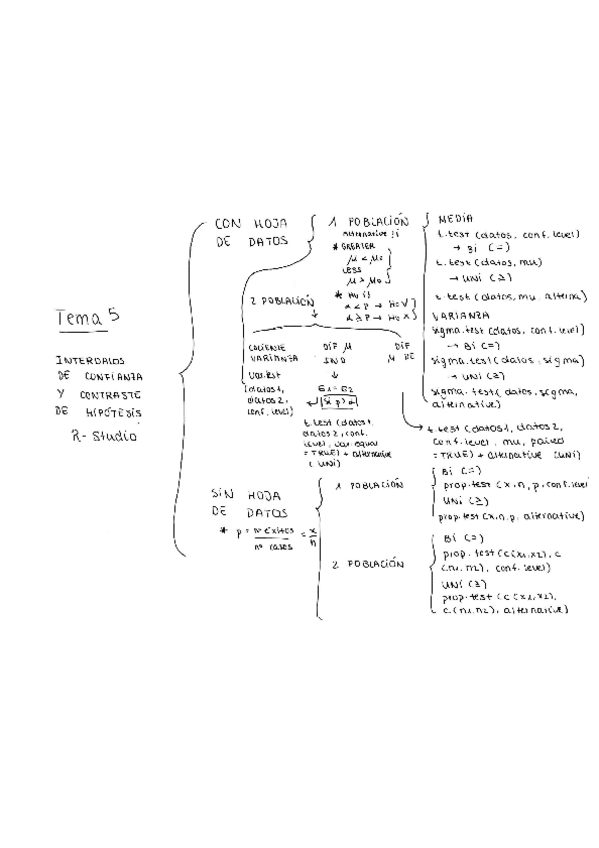 Tema 5
INTERVALOS
DE CONFIANZA
Y CONTRASTE
DE HIPÓTESIS
R-Studio
CON HOJA
DE DATOS
1 POBLACIÓN
Alternative
* GREATER
μ < μ0
LESS
μ > μ0
* H0
α < P → H0 V
α ≥ P → H0 X
MEDIA
t.test (datos, conf.level)
→ Bi (=)
t.test (datos, mu)
→ UNI (≥)
t.test (datos, mu, alterna)
VARIANZA
sigma.test (datos, conf.level)
→ Bi (=)
sigma.test (datos, sigma)
→ UNI (≥)
sigma.test (datos, sigma,
alternative)
2 POBLACIÓN
COCIENTE
VARIANZA
var.test
(datos1,
datos2,
conf.level)
DIF μ
IND
σ1 = σ2
t.test (datos1,
datos2, conf.
level, var.equal
= TRUE) + alternative
(UNI)
DIF
μ DE
t.test (datos1, datos2,
conf.level, mu, paired
= TRUE) + alternative (UNI)
SIN HOJA
DE DATOS
* p = nº éxitos / nº casos = x/n
1 POBLACIÓN
Bi (=)
prop.test (x, n, p, conf.level
UNI (≥)
prop.test (x, n, p, alternative)
2 POBLACIÓN
Bi (=)
prop.test (c(x1,x2), c
(n1,n2), conf.level)
UNI (≥)
prop.test (c(x1,x2),
c(n1,n2), alternative)